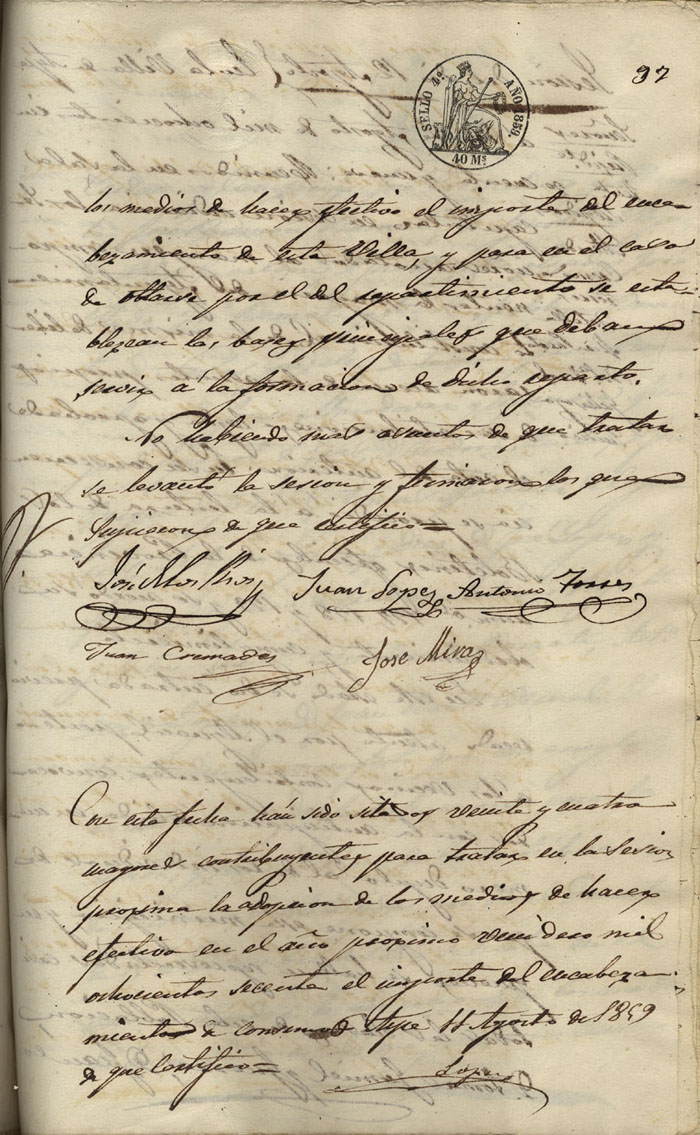 37
SELLO 4º AÑO 1859.
40 Ms
los medios de hacer efectivo el importe del enca-
bezamiento de esta Villa, y para en el caso
de obtarse por el del repartimiento se esta-
blezcan las bases principales que deban
servir á la formacion de dicho reparto.
No habiendo mas asuntos de que tratar
se levantó la sesion y firmaron los que
supieron de que certifico =
José Juan Lopez Antonio Torres
Juan Cremades Jose Mira
Con esta fecha han sido sitados veinte y cuatro
mayores contribuyentes para tratar en la sesion
proxima la adopcion de los medios de hacer
efectivo en el año proximo venidero mil
ochocientos secenta el importe del encabeza-
miento de consumos Aspe 11 Agosto de 1859
de que Certifico =
Lopez